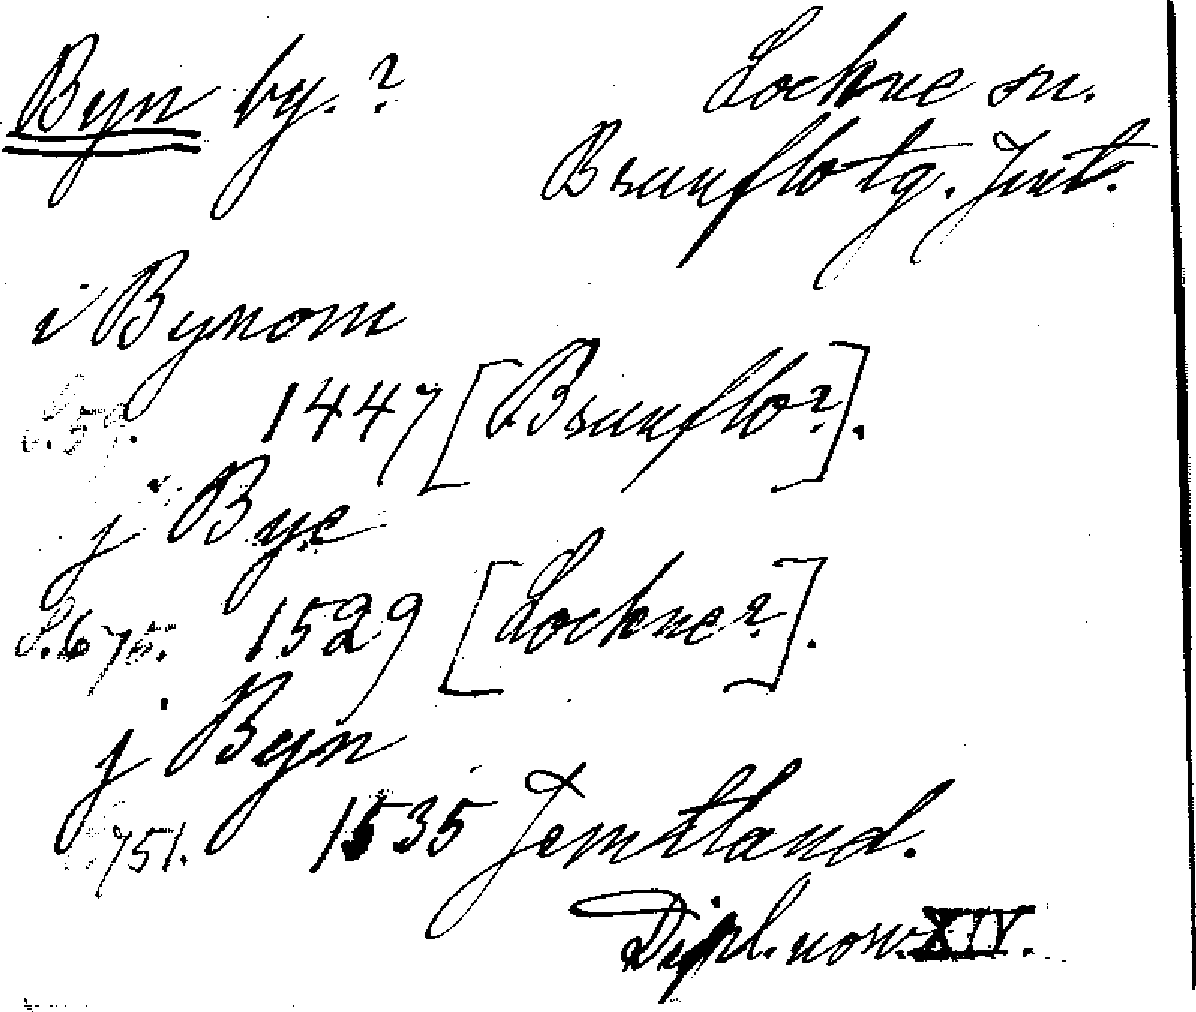 Byn by.? Lockne sn.
Brunflo tg. Jmt.
i Bynom
S. 59. 1447 [Brunflo?].
j Bye
S. 675. 1529 [Lockne?].
j Byn
751. 1535 Jemtland.
Dipl. norv. XIV.